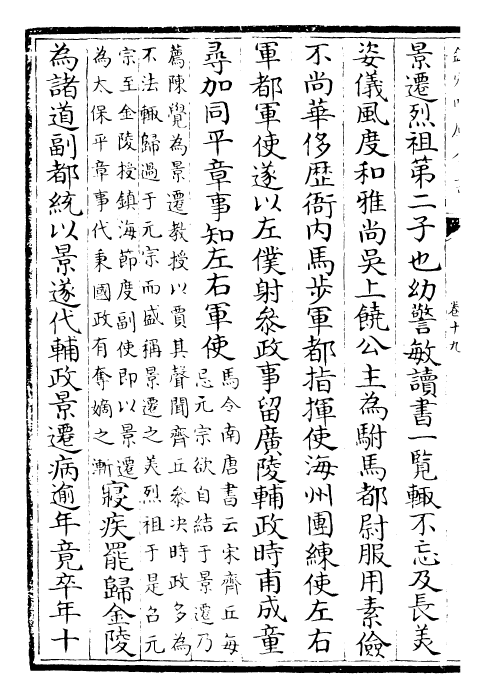 卷十九
景遷烈祖第二子也幼警敏讀書一覧輙不忘及長美
姿儀風度和雅尚吳上饒公主為駙馬都尉服用素儉
不尚華侈歴衙内馬步軍都指揮使海州團練使左右
軍都軍使遂以左僕射叅政事留廣陵輔政時甫成童
尋加同平章事知左右軍使
馬令南唐書云宋齊丘每
忌元宗欲自結于景遷乃
薦陳覺為景遷教授以賈其聲聞齊丘叅决時政多為
不法輙歸過于元宗而盛稱景遷之美烈祖于是召元
宗至金陵授鎮海節度副使即以景遷
為太保平章事代秉國政有奪嫡之漸
寢疾罷歸金陵
為諸道副都統以景遂代輔政景遷病逾年竟卒年十